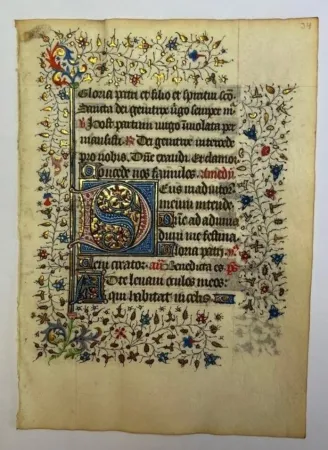 Gloria patri et filio et spiritui sco
Sancta dei genitrix vgo semper m
Post partum virgo inviolata per
mansisti Dei genitrix intercede
pro nobis. Dne exaudi Et clamor
Concede nos famulos.
Deus in adiutor
meum intende
Dne ad adiuva
dum me festina
Gloria patri
Sicut erat or añ Benedicta es ps
Ad te levavi oculos meos:
qui habitas in celis